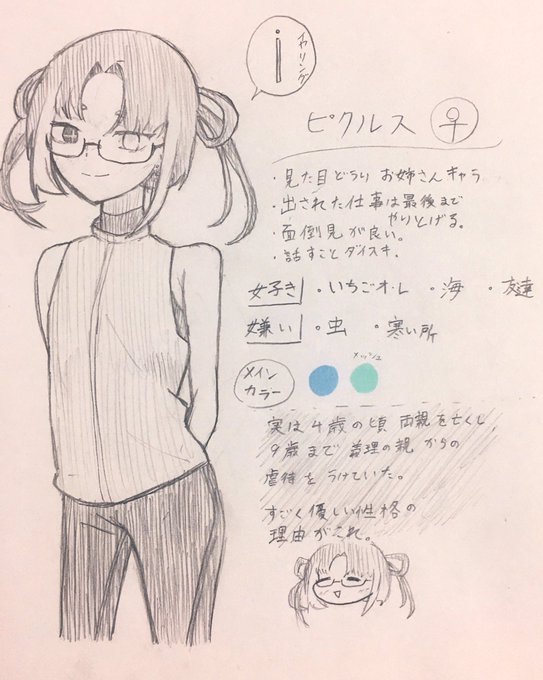 i
イヤリング
ピクルス ♀
・見た目どうり お姉さんキャラ
・出された仕事は最後まで
やりとげる。
・面倒見が良い。
・話すことダイスキ.
好き ・いちごオ・レ ・海 ・友達
嫌い ・虫 ・寒い所
メイン
カラー
メッシュ
実は4歳の頃 両親を亡くし、
9歳まで 義理の親 からの
虐待をうけていた。
すごく優しい性格の
理由がこれ。